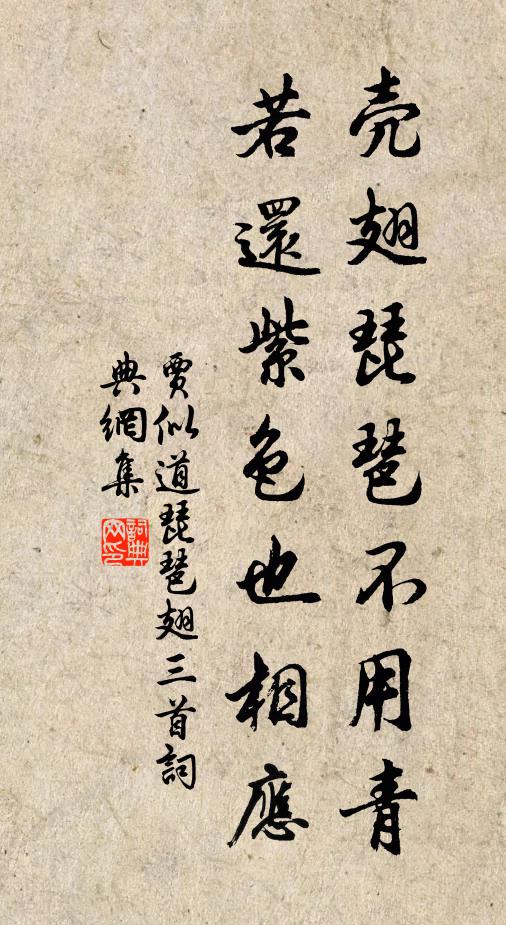 壳翅琵琶不用青
若還紫色也相應
賈似道琵琶翅三首詞
典網集
詞典
网印